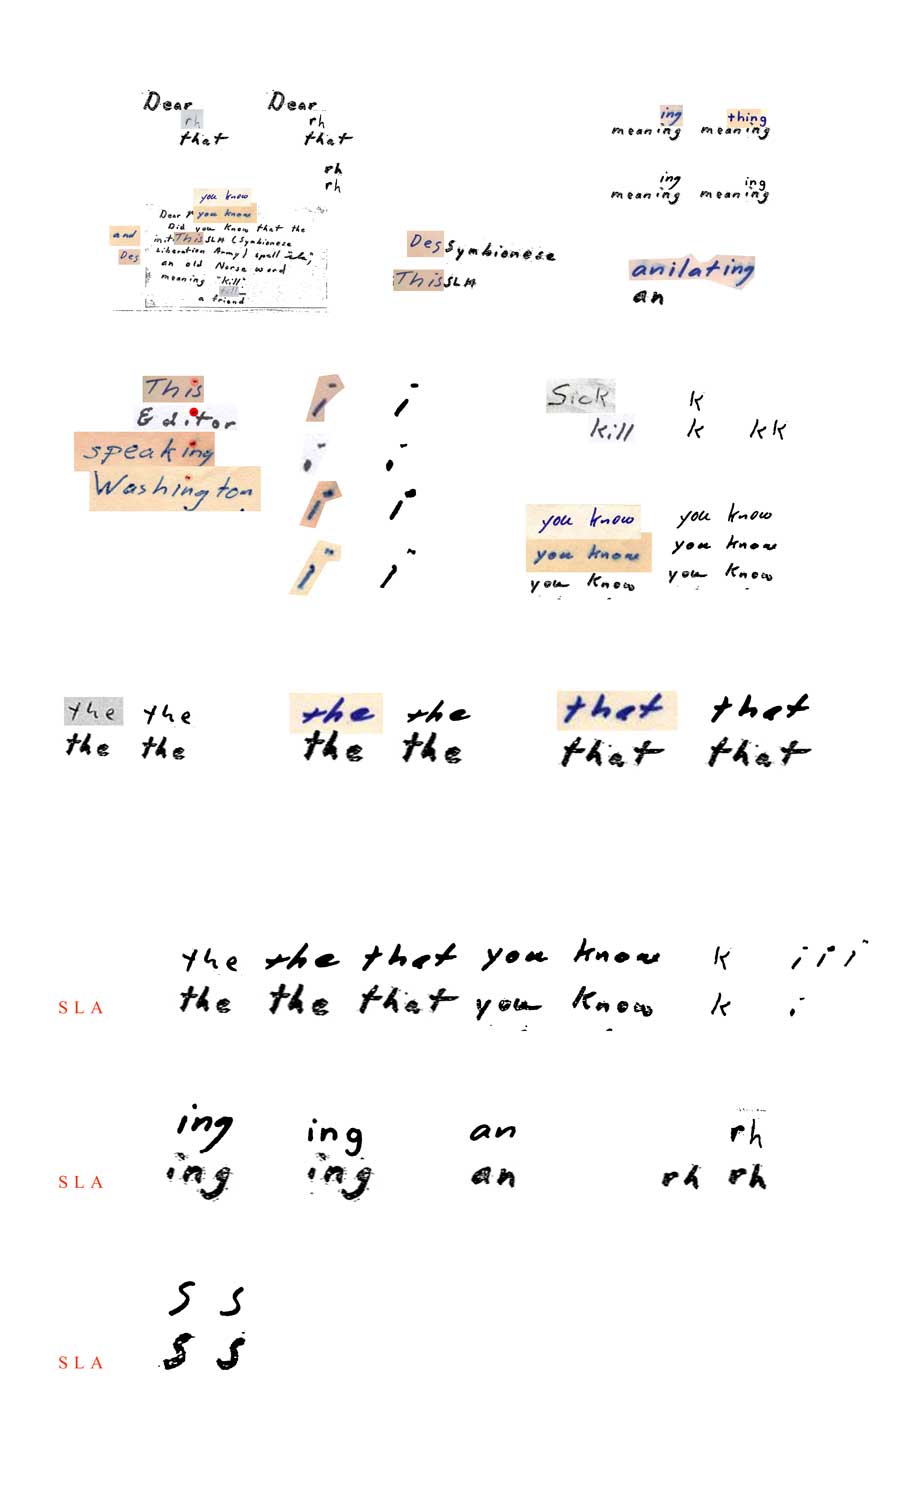 Dear Dear
rh rh
that that
rh
rh
you know
you know
Dear
Did you know that the
and
init This SLA (Symbionese
Des
Liberation Army) spell "sla,"
an old Norse word
meaning "kill."
kill
a friend
ing thing
meaning meaning
ing ing
meaning meaning
Des Symbionese
This SLA
anilating
an
This
Editor
speaking
Washington
i i
i i
i i
i i
Sick k
kill k kk
you know you know
you know you know
you know you know
the the
the the
the the
the the
that that
that that
the the that you know k i i i
SLA the the that you know k i
ing ing an rh
SLA ing ing an rh rh
S S
SLA S S